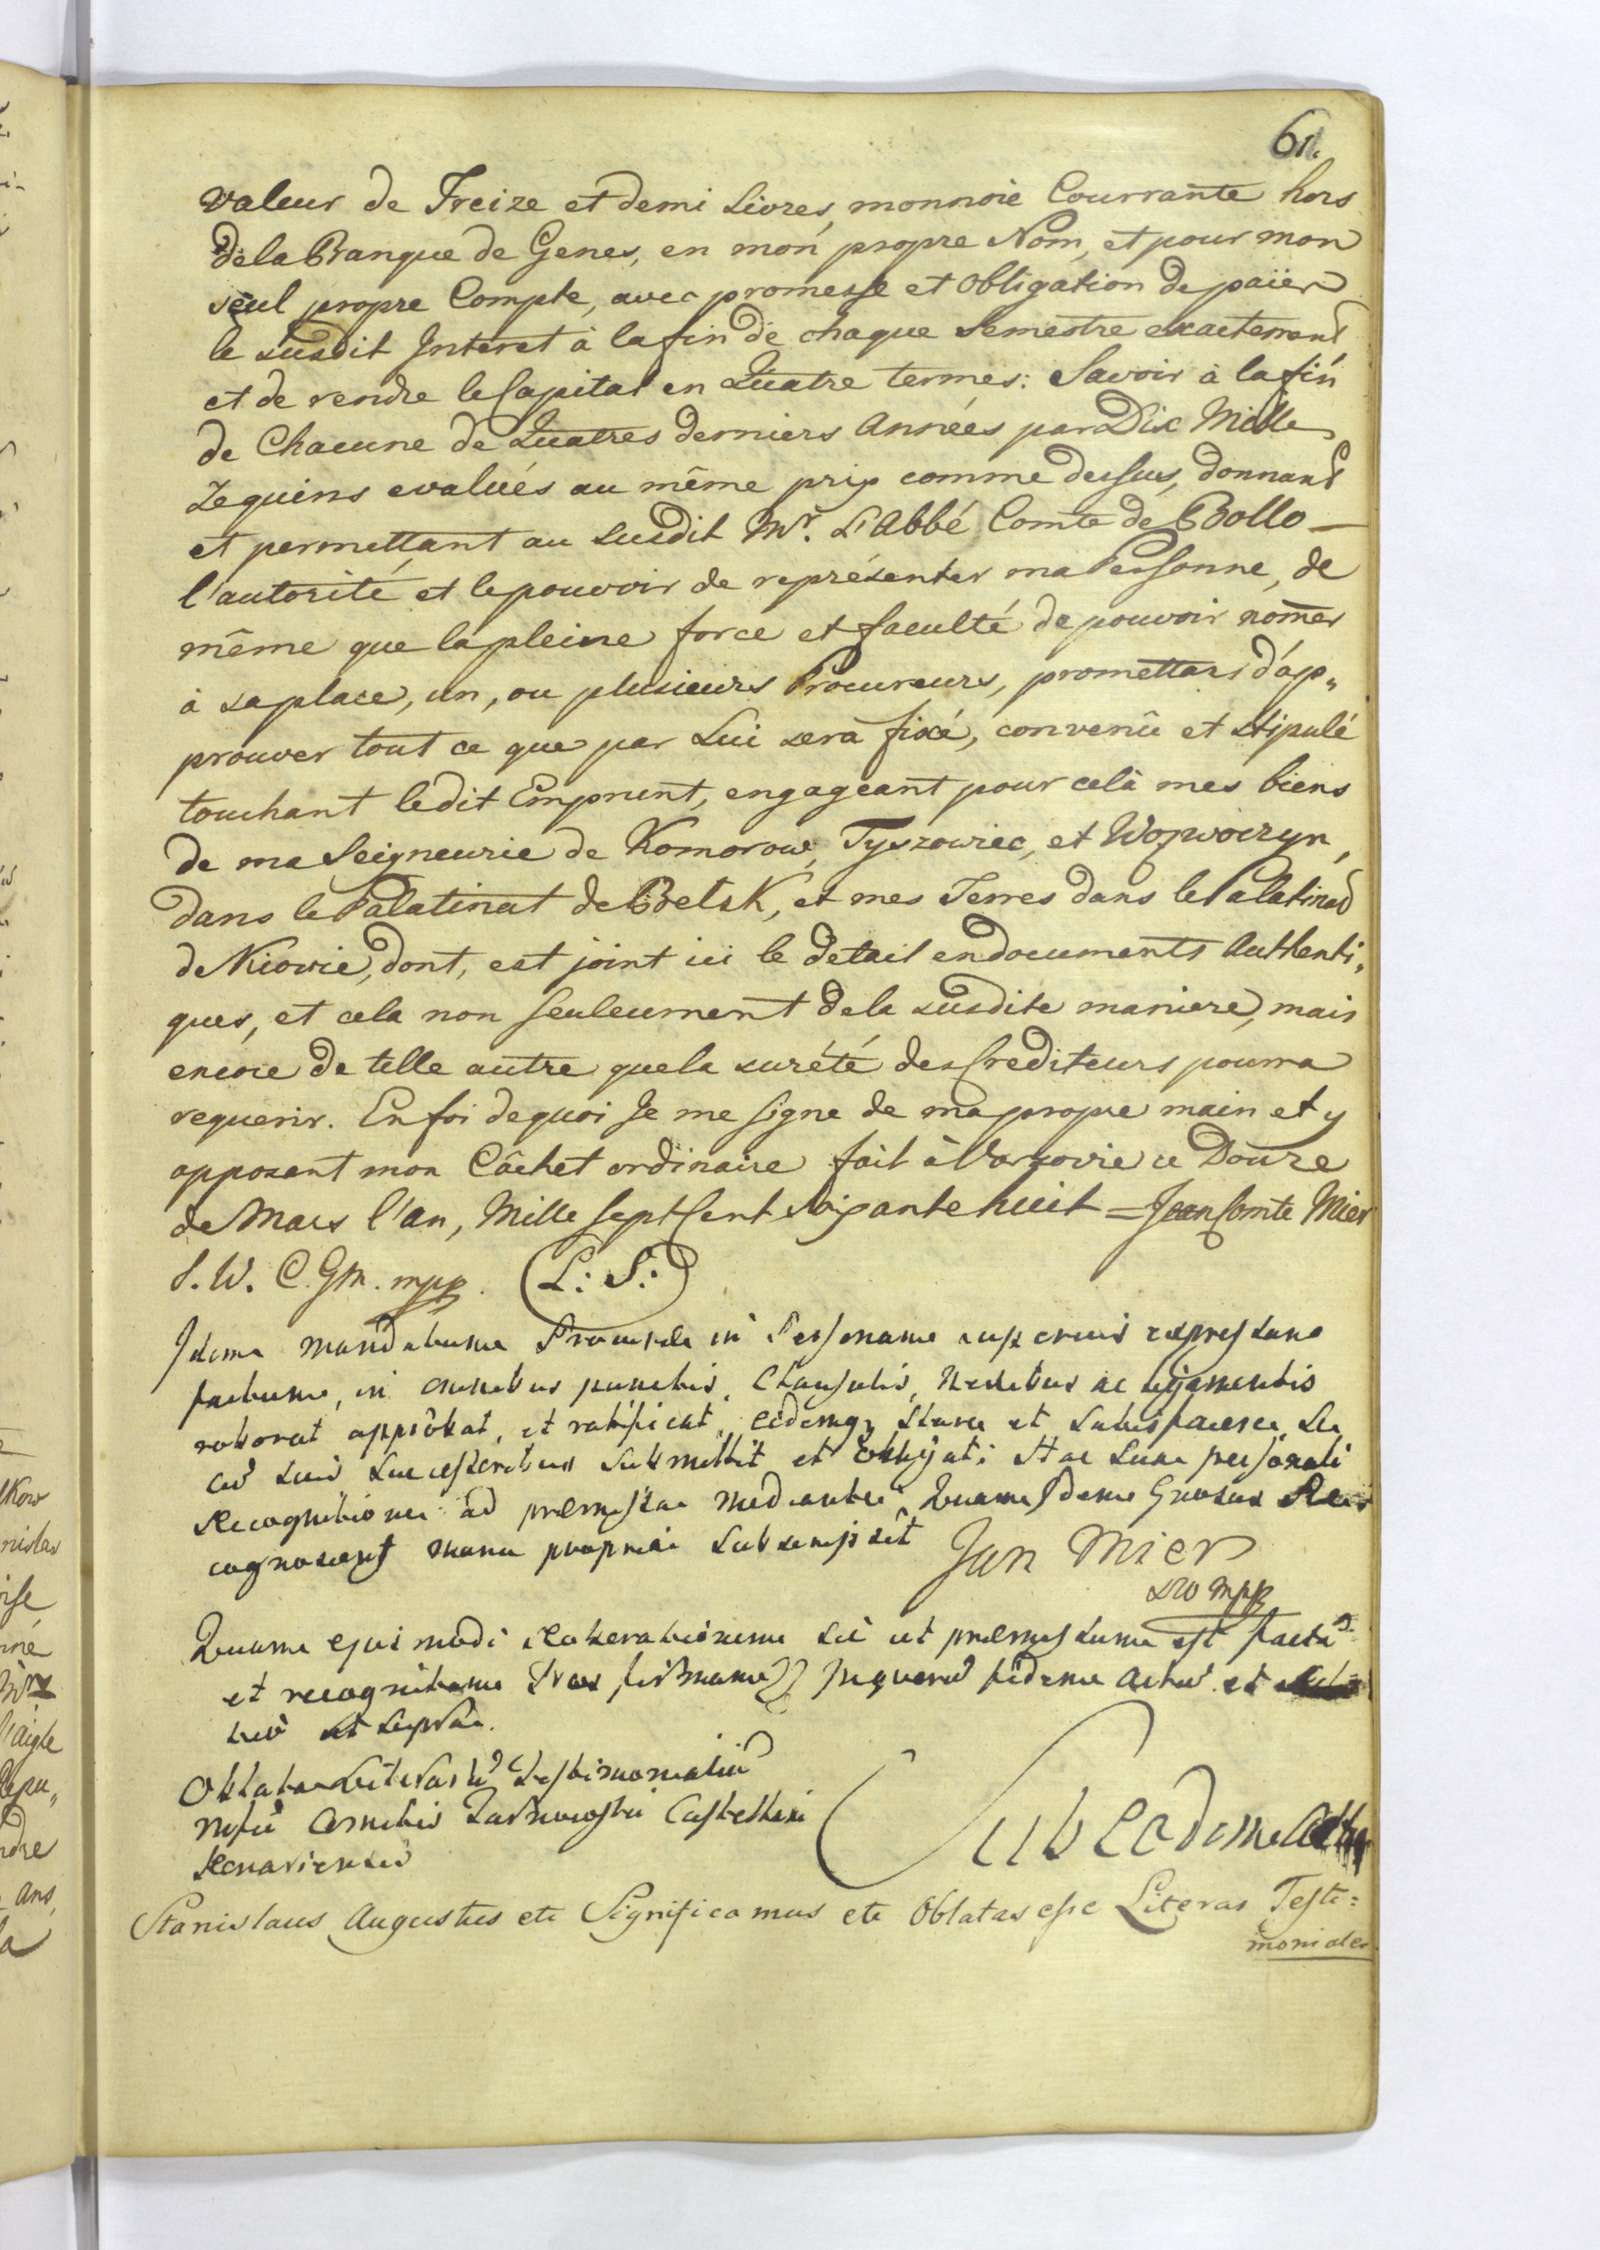 61.
valeur de Treize et demi Livres, monnoie Courrante hors
de la Banque de Genes, en mon propre Nom, et pour mon
seul propre Compte, avec promesse et obligation de paier
le susdit Interet à la fin de chaque Semestre exactement
et de rendre le Capital en Quatre termes: Savoir à la fin
de Chacune de Quatres derniers Années par Dix Mille
Zequins evalués au même prix comme dessus, donnant
et permettant au susdit Mr. L'Abbé Comte de Bollo —
l'autorité et le pouvoir de représenter ma Personne, de
même que la pleine force et faculté de pouvoir nomer
à sa place, un, ou plusieurs Procureurs, promettant d'ap„
prouver tout ce que par Lui sera fixé, convenû et stipulé
touchant ledit Emprunt, engageant pour celà mes biens
de ma Seigneurie de Komorow, Tyszowiec, et Wozwoczyn,
dans le Palatinat de Belsk, et mes Terres dans le Palatinat
de Kiovie, dont, est joint ici le detail en documents Authenti„
ques, et cela non seuleument de la susdite maniere, mais
encore de telle autre que la sureté des Crediteurs pourra
requerir. En foi de quoi Je me signe de ma propre main et y
opposent mon Câchet ordinaire fait à Varsovie ce Douze
de Mars l'an, Mille Sept Cent Soixante huit = Jean Comte Mier
S. W. C. Gm. mpp. (L: S:)
Idem mandatum in Personam expressam
factum, in omnibus punctis, Clausulis, Nexibus ac ligamentis
roborat approbat, et ratificat, eidemq; stare et satisfacere, se
ac suos successores submittit et obligat; Hac sua personali
Recognitione ad præmissa mediante. Quam Idem Grosus Re
cognoscens manu propria subscripsit Jan Mier
mpp
Quam ejus modi roborationem sic ut præmissum est factam
et recognitam fidem Actu et
Oblata Literarum Testimonialium
Comitis Tarnowski Castellani
Stanislaus Augustus etc Significamus etc Oblatas esse Literas Testi=
moniales